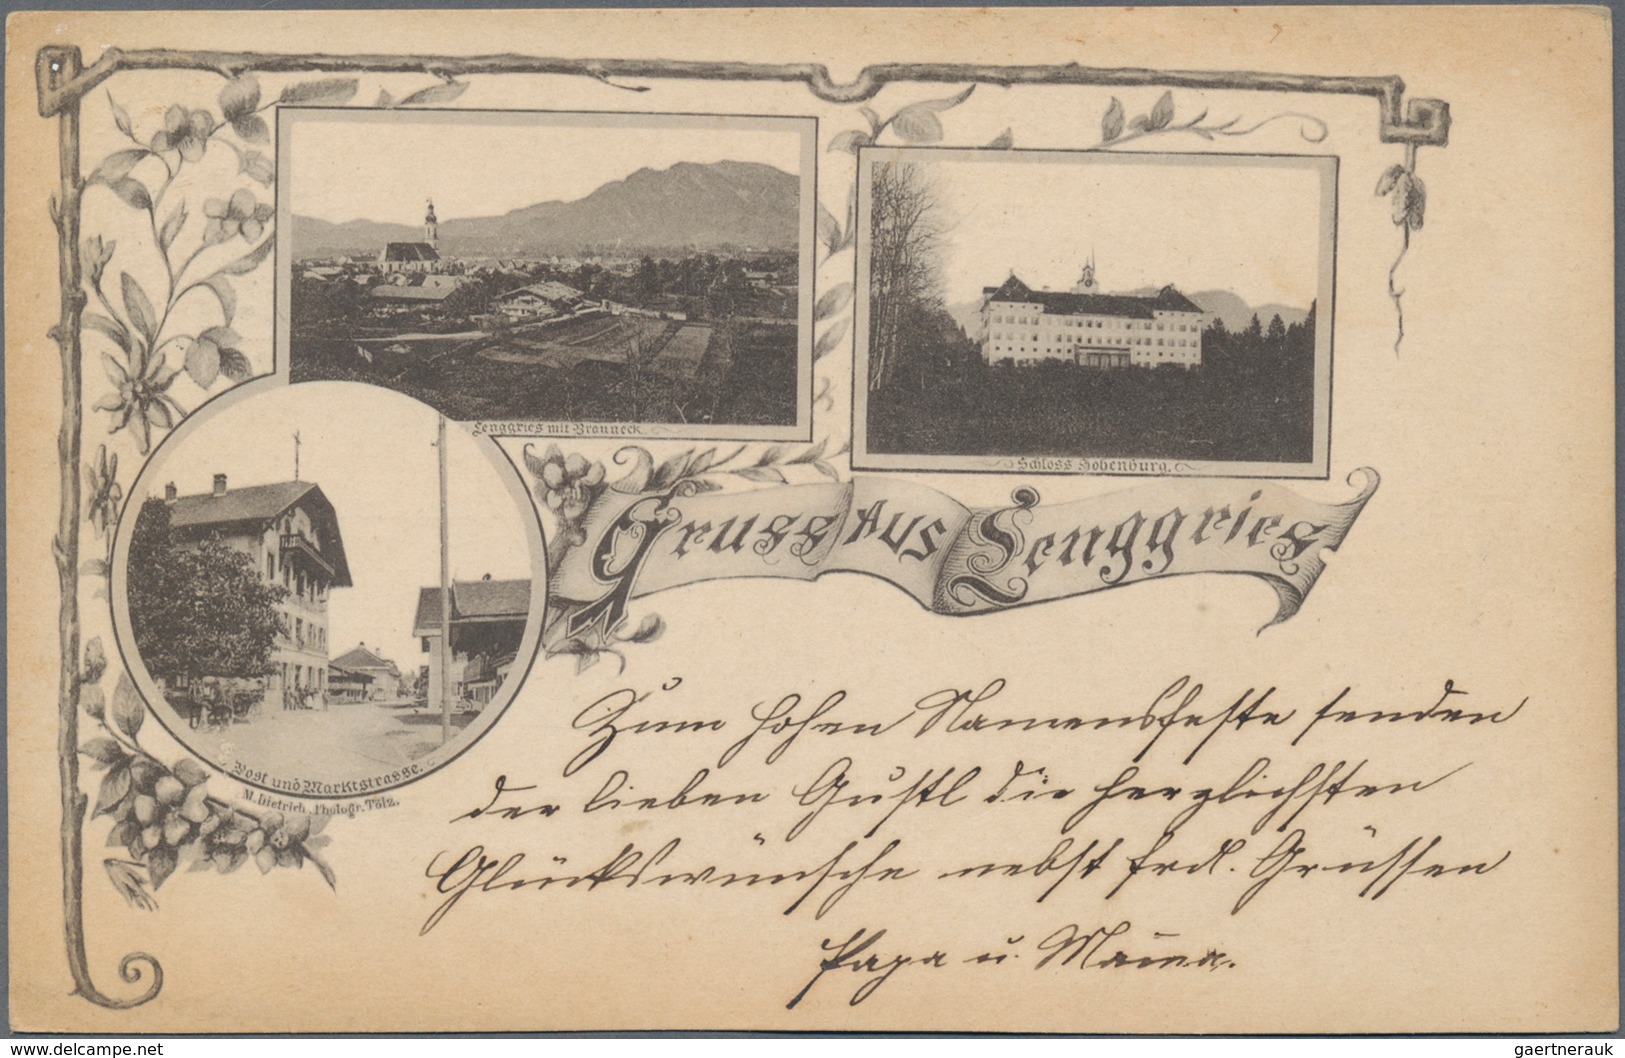 Lenggries mit Brauneck
Schloss Hohenburg.
Gruss aus Lenggries
Post und Marktstrasse.
M. Dietrich, Photogr. Tölz.
Zum hohen Namensfeste senden
der lieben Gustl die herzlichsten
Glückswünsche nebst frdl. Grüssen
Papa u. Mama.
www.delcampe.net
gaertnerauk